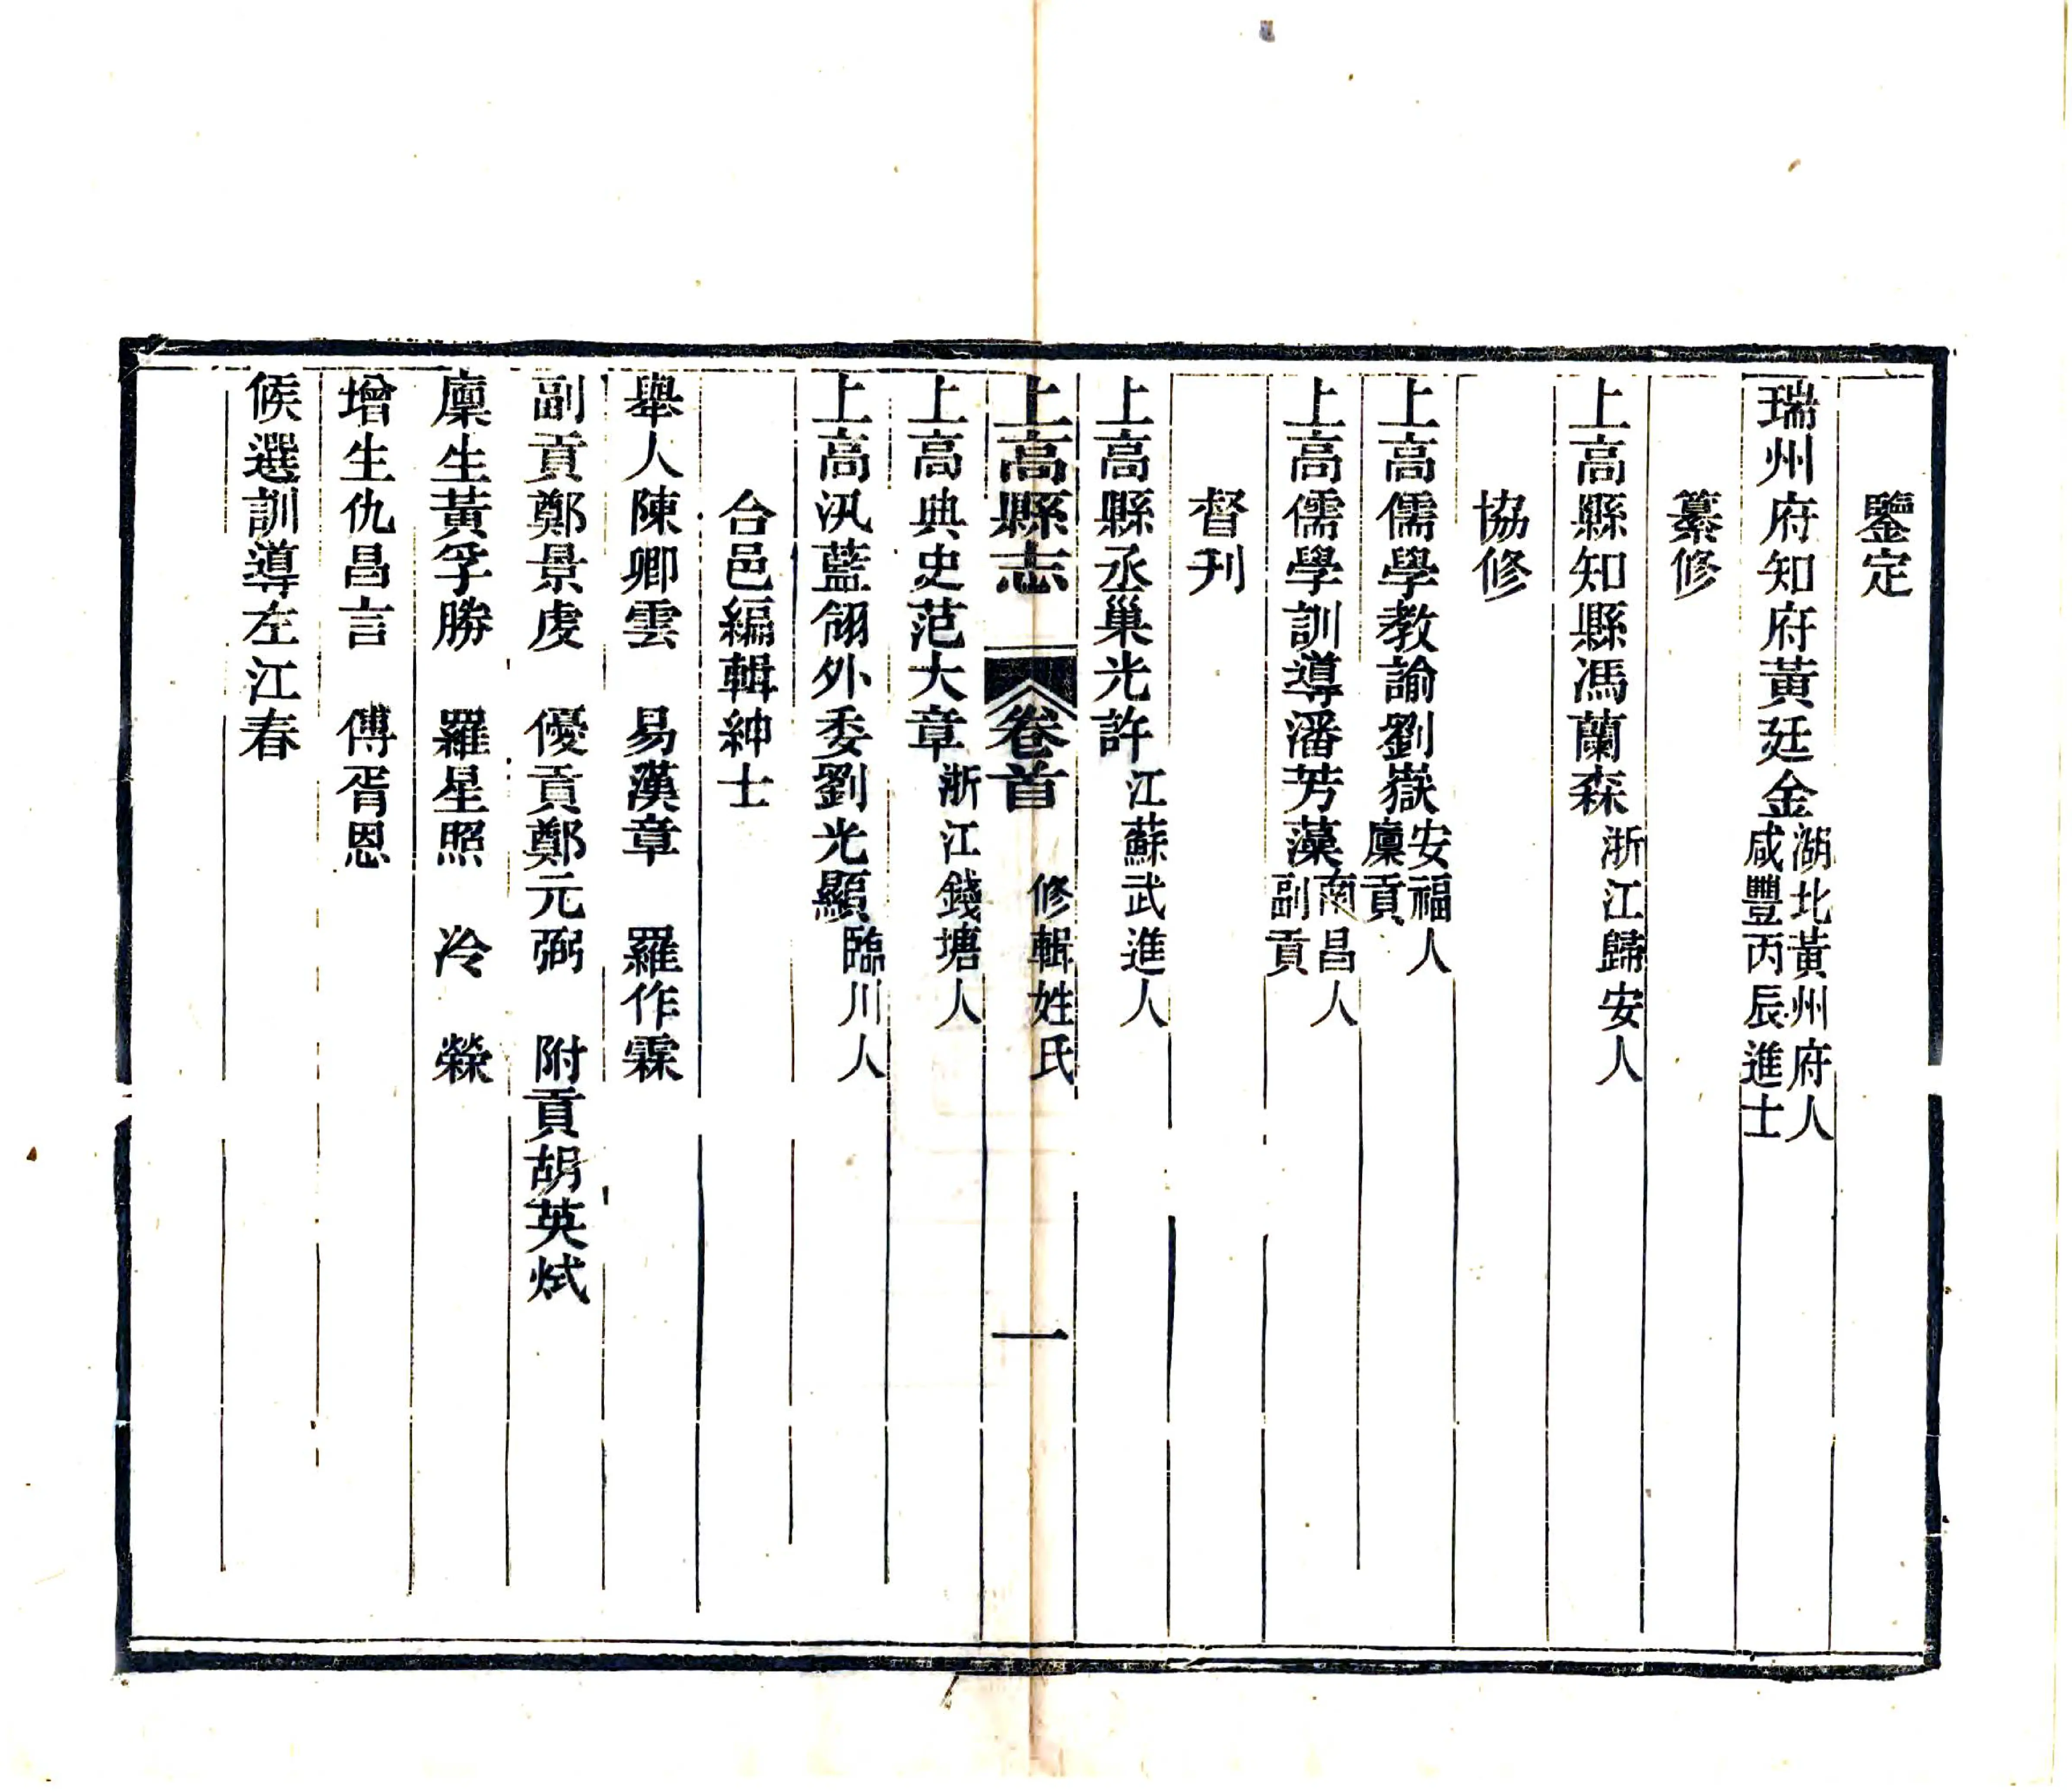 鑒定
瑞州府知府黃廷金湖北黃州府人咸豐丙辰進士
纂修
上高縣知縣馮蘭森浙江歸安人
協修
上高儒學教諭劉嶽安福人廩貢
上高儒學訓導潘芳藻南昌人副貢
督刋
上高縣丞巢光許江蘇武進人
上高縣志 卷首 修輯姓氏 一
上高典史范大章浙江錢塘人
上高汛藍翎外委劉光顯臨川人
合邑編輯紳士
舉人陳卿雲 易漢章 羅作霖
副貢鄭景虔 優貢鄭元弼 附貢胡英烒
廩生黃孚勝 羅星照 冷榮
增生仇昌言 傅胥恩
候選訓導左江春